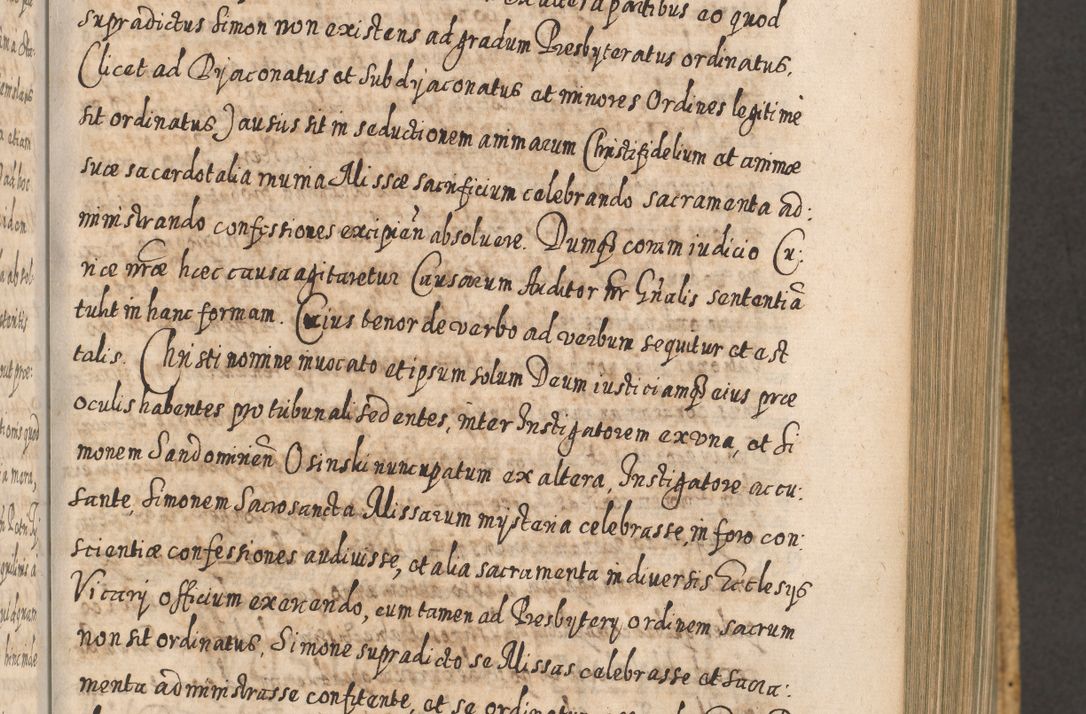 ex altera partibus eo quod
supradictus Simon non existens ad gradum Presbyteratus ordinatus,
(licet ad Dyaconatus et Subdyaconatus et minores Ordines legitime
sit ordinatus) ausus sit in seductionem animarum Christifidelium et animæ
suæ sacerdotalia munia Missæ sacrificium celebrando sacramenta ad:
ministrando confessiones excipien̄ absoluere. Dumq3 coram iudicio Cu:
riæ nr̄æ hæc causa agitaretur Causarum Auditor nr̄ Gn̄alis sententiā
tulit in hanc formam. Cuius tenor de verbo ad verbum sequitur et est
talis. Christi nomine inuocato et ipsum solum Deum iustitiamq3 eius præ
oculis habentes pro tribunali sedentes, inter Instigatorem ex vna, et Si
monem Sandomirien̄ Osinski nuncupatum ex altera, Instigatore accu:
sante, Simonem Sacrosancta Missarum mysteria celebrasse, in foro con:
scientiæ confessiones audiuisse, et alia sacramenta in diuersis Ecclesys
Vicarij officium exercendo, cum tamen ad Presbytery ordinem sacrum
non sit ordinatus, Simone supradicto se Missas celebrasse et Sacra:
menta administrasse confitente, et se